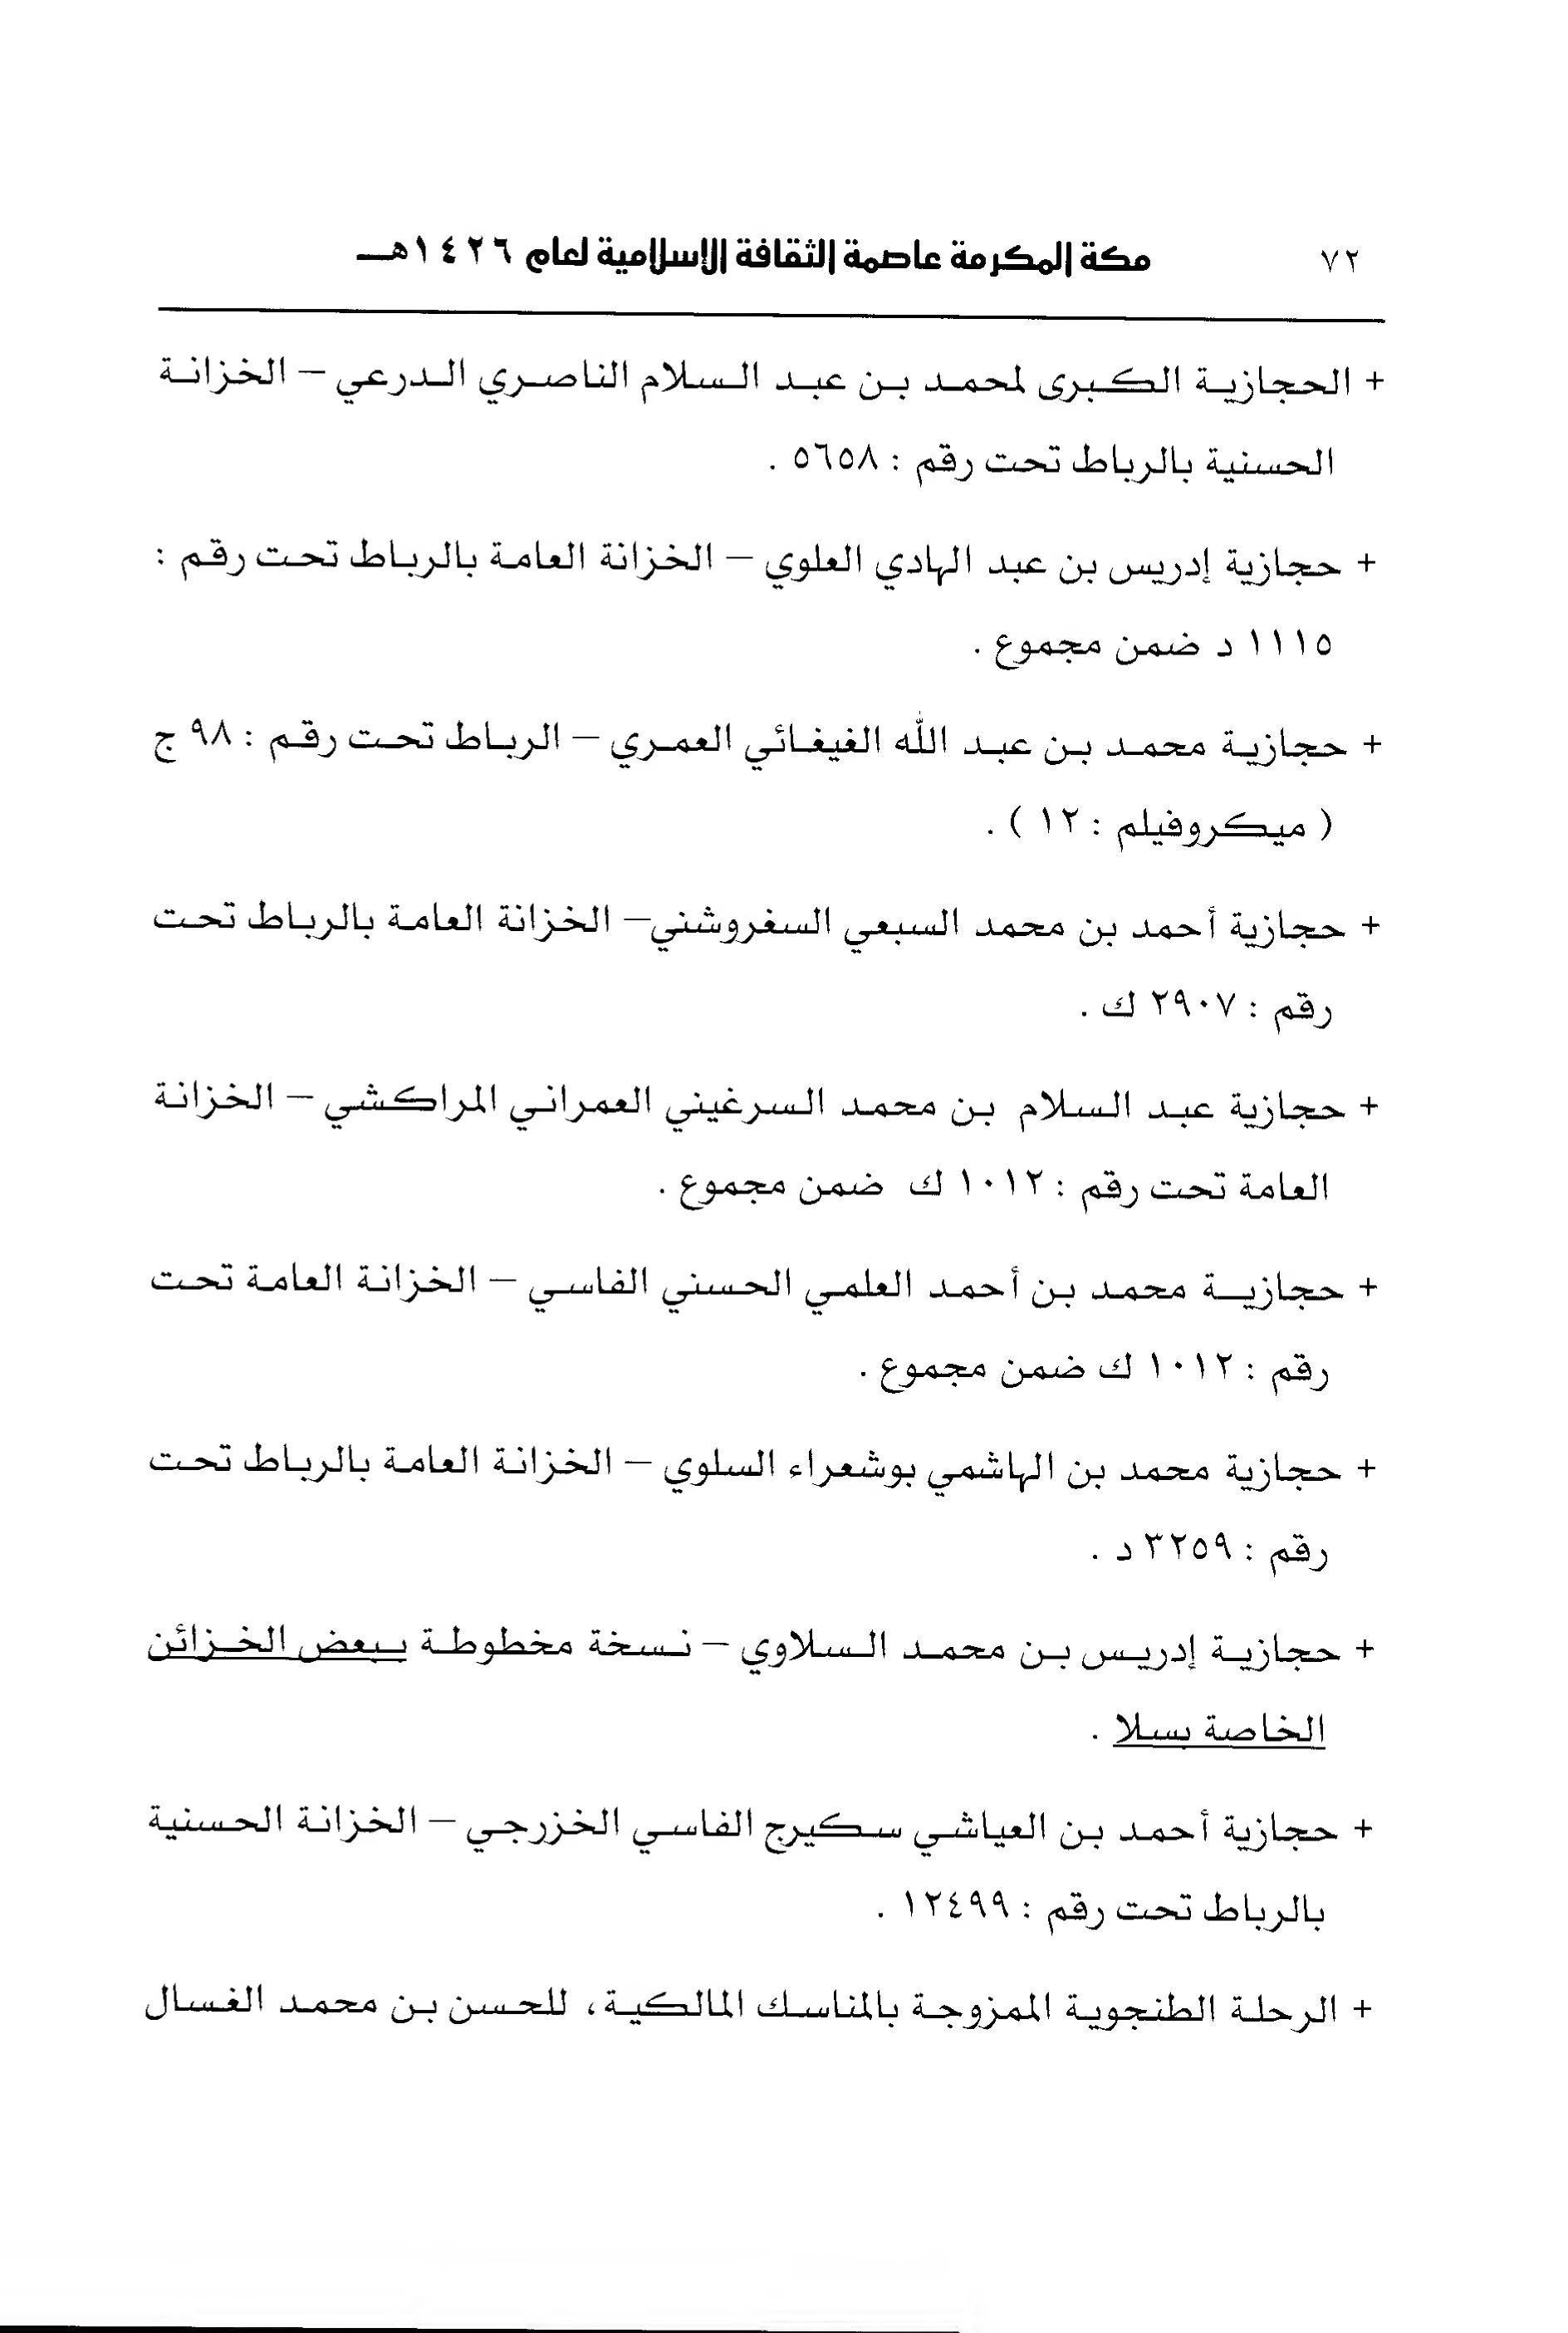 ٧٢ مكة المكرمة عاصمة الثقافة الإسلامية لعام ١٤٢٦هـ
+ الحجازية الكبرى لمحمد بن عبد السلام الناصري الدرعي – الخزانة
الحسنية بالرباط تحت رقم : ٥٦٥٨ .
+ حجازية إدريس بن عبد الهادي العلوي – الخزانة العامة بالرباط تحت رقم :
١١١٥ د ضمن مجموع .
+ حجازية محمد بن عبد الله الغيغائي العمري – الرباط تحت رقم : ٩٨ ج
( ميكروفيلم : ١٢ ) .
+ حجازية أحمد بن محمد السبعي السغروشني– الخزانة العامة بالرباط تحت
رقم : ٢٩٠٧ ك .
+ حجازية عبد السلام بن محمد السرغيني العمراني المراكشي – الخزانة
العامة تحت رقم : ١٠١٢ ك ضمن مجموع .
+ حجازية محمد بن أحمد العلمي الحسني الفاسي – الخزانة العامة تحت
رقم : ١٠١٢ ك ضمن مجموع .
+ حجازية محمد بن الهاشمي بوشعراء السلوي – الخزانة العامة بالرباط تحت
رقم : ٣٢٥٩ د .
+ حجازية إدريس بن محمد السلاوي – نسخة مخطوطة ببعض الخزائن
الخاصة بسلا .
+ حجازية أحمد بن العياشي سكيرج الفاسي الخزرجي – الخزانة الحسنية
بالرباط تحت رقم : ١٢٤٩٩ .
+ الرحلة الطنجوية الممزوجة بالمناسك المالكية، للحسن بن محمد الغسال